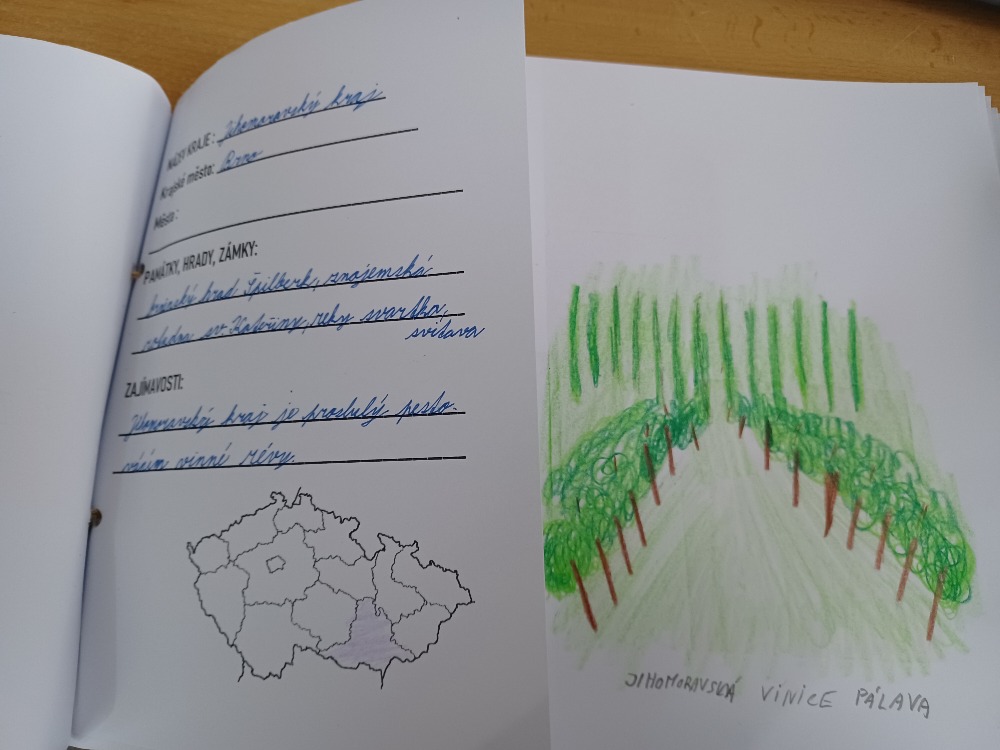 NÁZEV KRAJE: Jihomoravský kraj
Krajské město: Brno
Město:
PAMÁTKY, HRADY, ZÁMKY:
brněnský hrad Špilberk, znojemská
rotadna sv Kateřiny, reky svartka,
svitava
ZAJÍMAVOSTI:
Jihomoravský kraj je proslulý pesto-
váním vinné révy.
JIHOMORAVSKÁ VINICE PÁLAVA